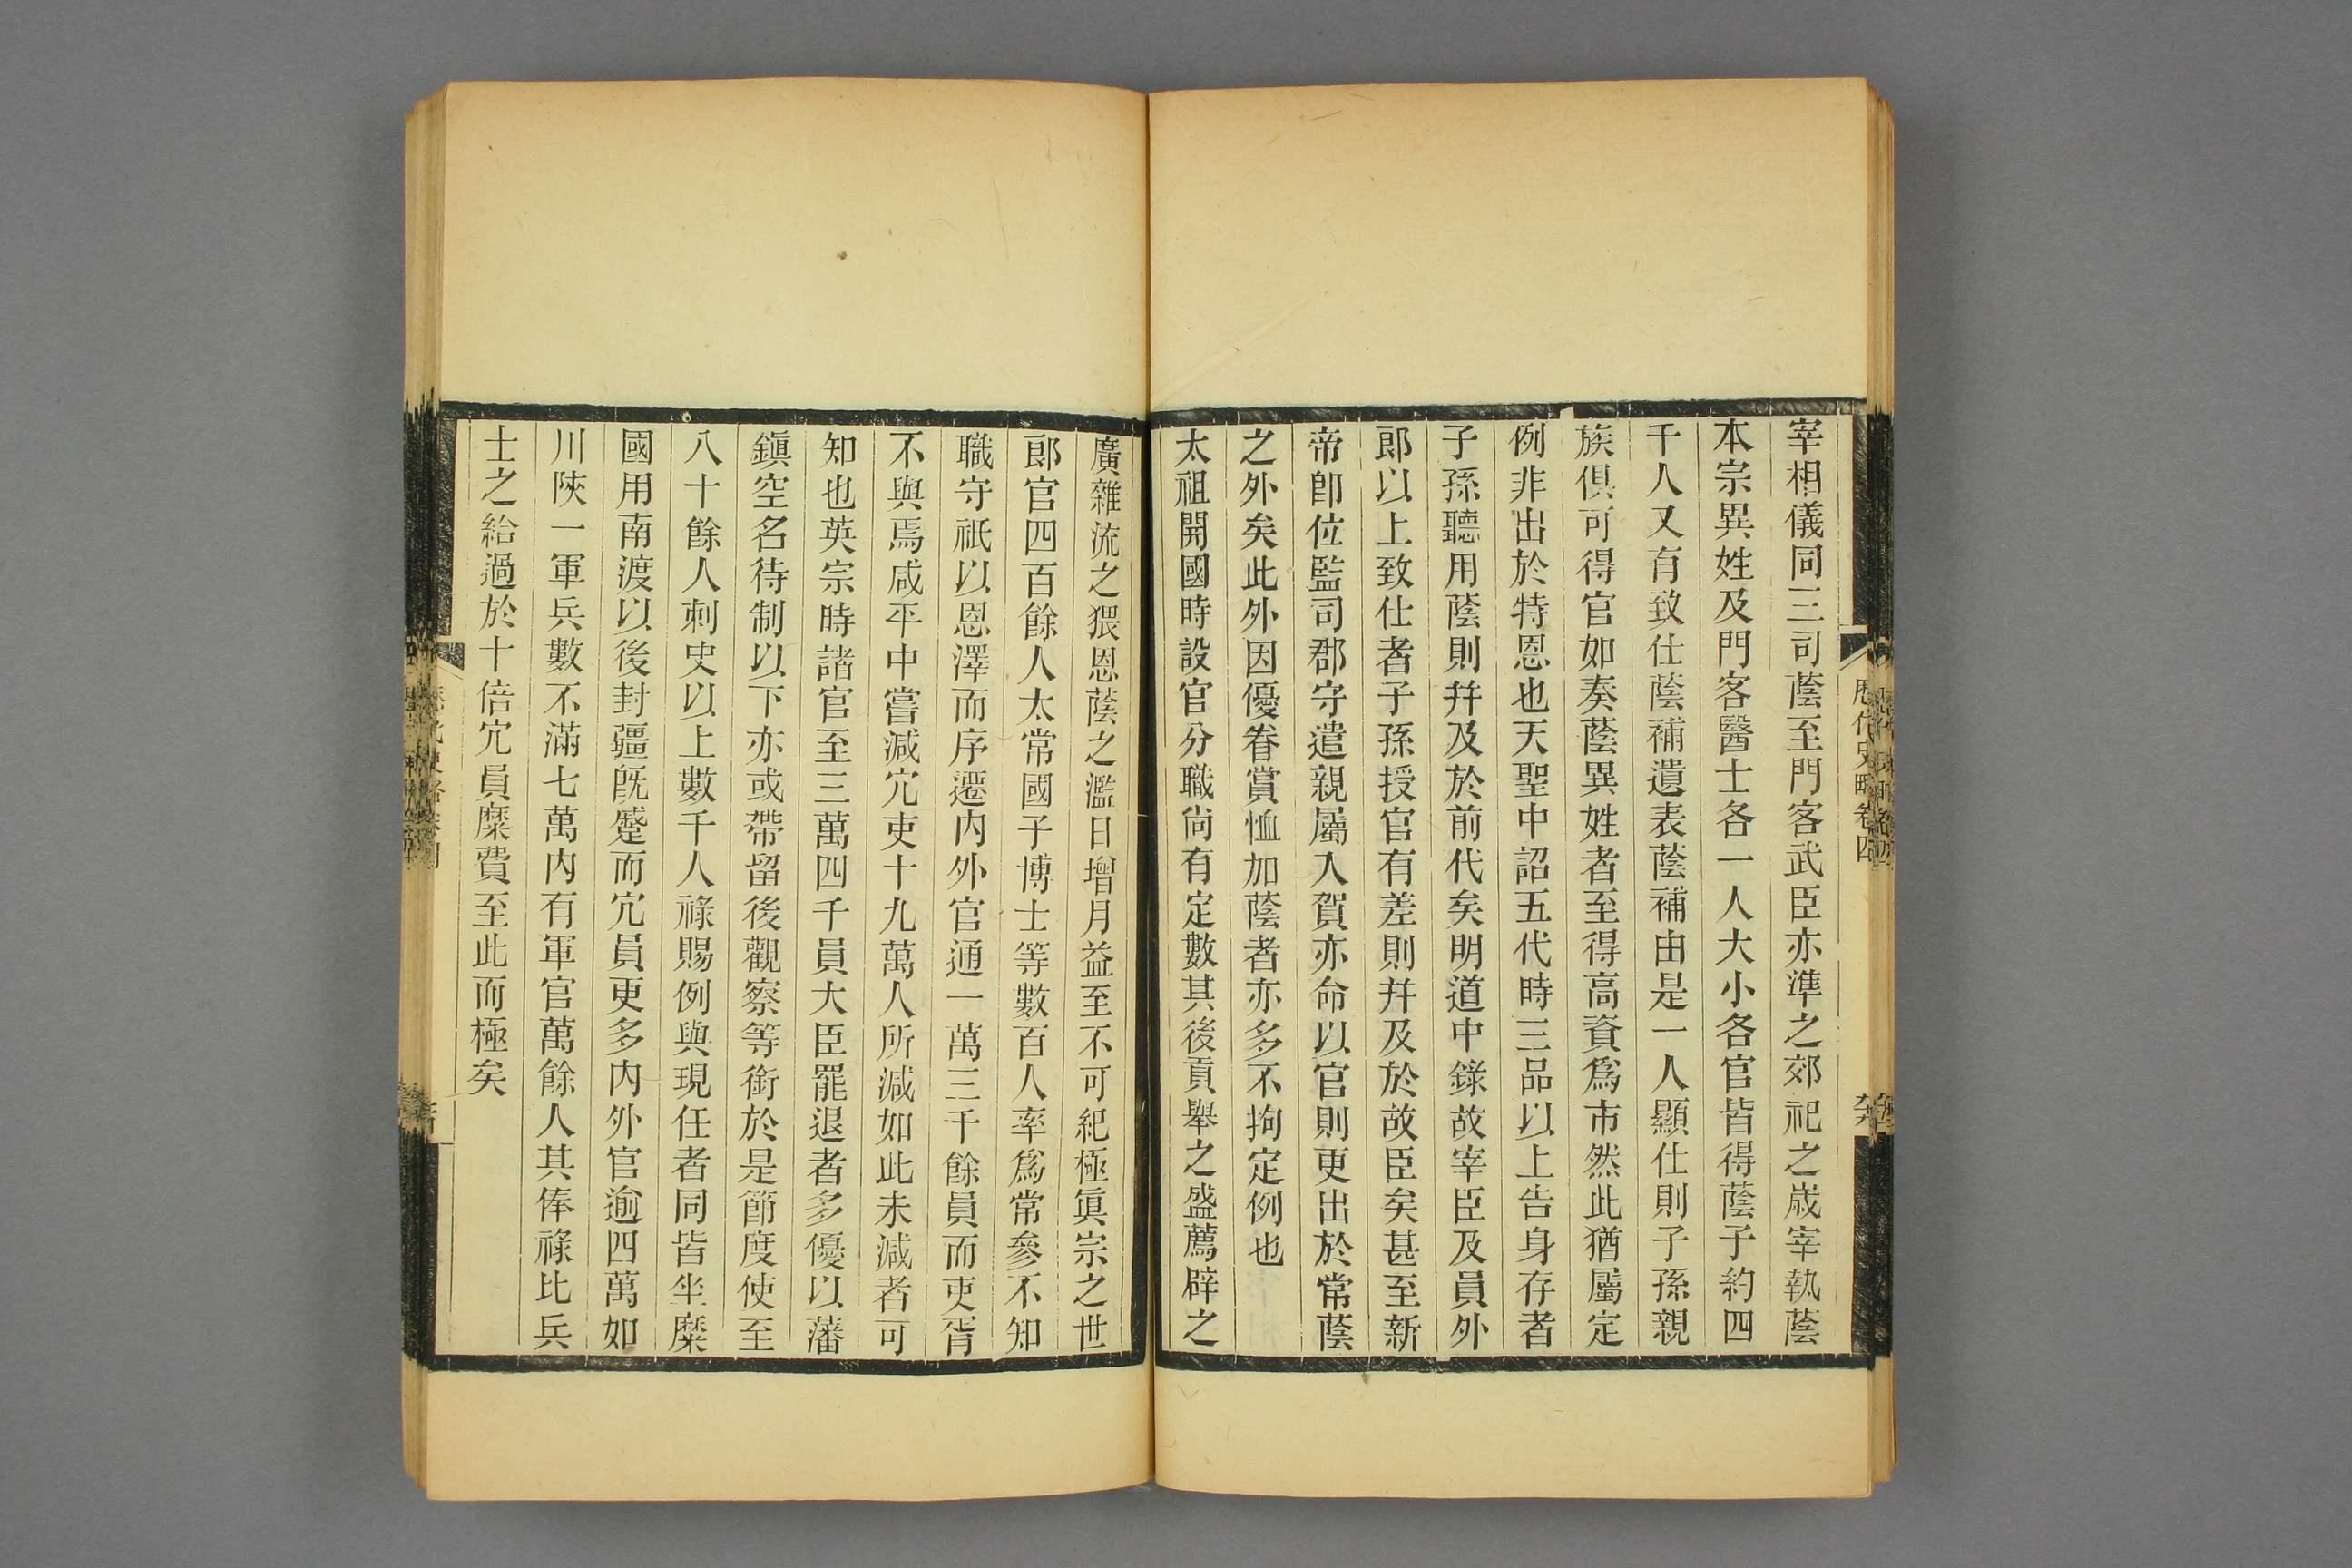 宰相儀同三司蔭至門客武臣亦準之郊祀之歲宰執蔭
本宗異姓及門客醫士各一人大小各官皆得蔭子約四
千人又有致仕蔭補遺表蔭補由是一人顯仕則子孫親
族俱可得官如奏蔭異姓者至得高資爲市然此猶屬定
例非出於特恩也天聖中詔五代時三品以上告身存者
子孫聽用蔭則幷及於前代矣明道中錄故宰臣及員外
郎以上致仕者子孫授官有差則幷及於故臣矣甚至新
帝卽位監司郡守遣親屬入賀亦命以官則更出於常蔭
之外矣此外因優眷賞恤加蔭者亦多不拘定例也
太祖開國時設官分職尙有定數其後貢舉之盛薦辟之
廣雜流之猥恩蔭之濫日增月益至不可紀極眞宗之世
郞官四百餘人太常國子博士等數百人率爲常參不知
職守祇以恩澤而序遷內外官通一萬三千餘員而吏胥
不與焉咸平中嘗減宂吏十九萬人所減如此未減者可
知也英宗時諸官至三萬四千員大臣罷退者多優以藩
鎭空名待制以下亦或帶留後觀察等銜於是節度使至
八十餘人刺史以上數千人祿賜例與現任者同皆坐糜
國用南渡以後封疆旣蹙而宂員更多內外官逾四萬如
川陝一軍兵數不滿七萬內有軍官萬餘人其俸祿比兵
士之給過於十倍宂員糜費至此而極矣
歷代史略卷四